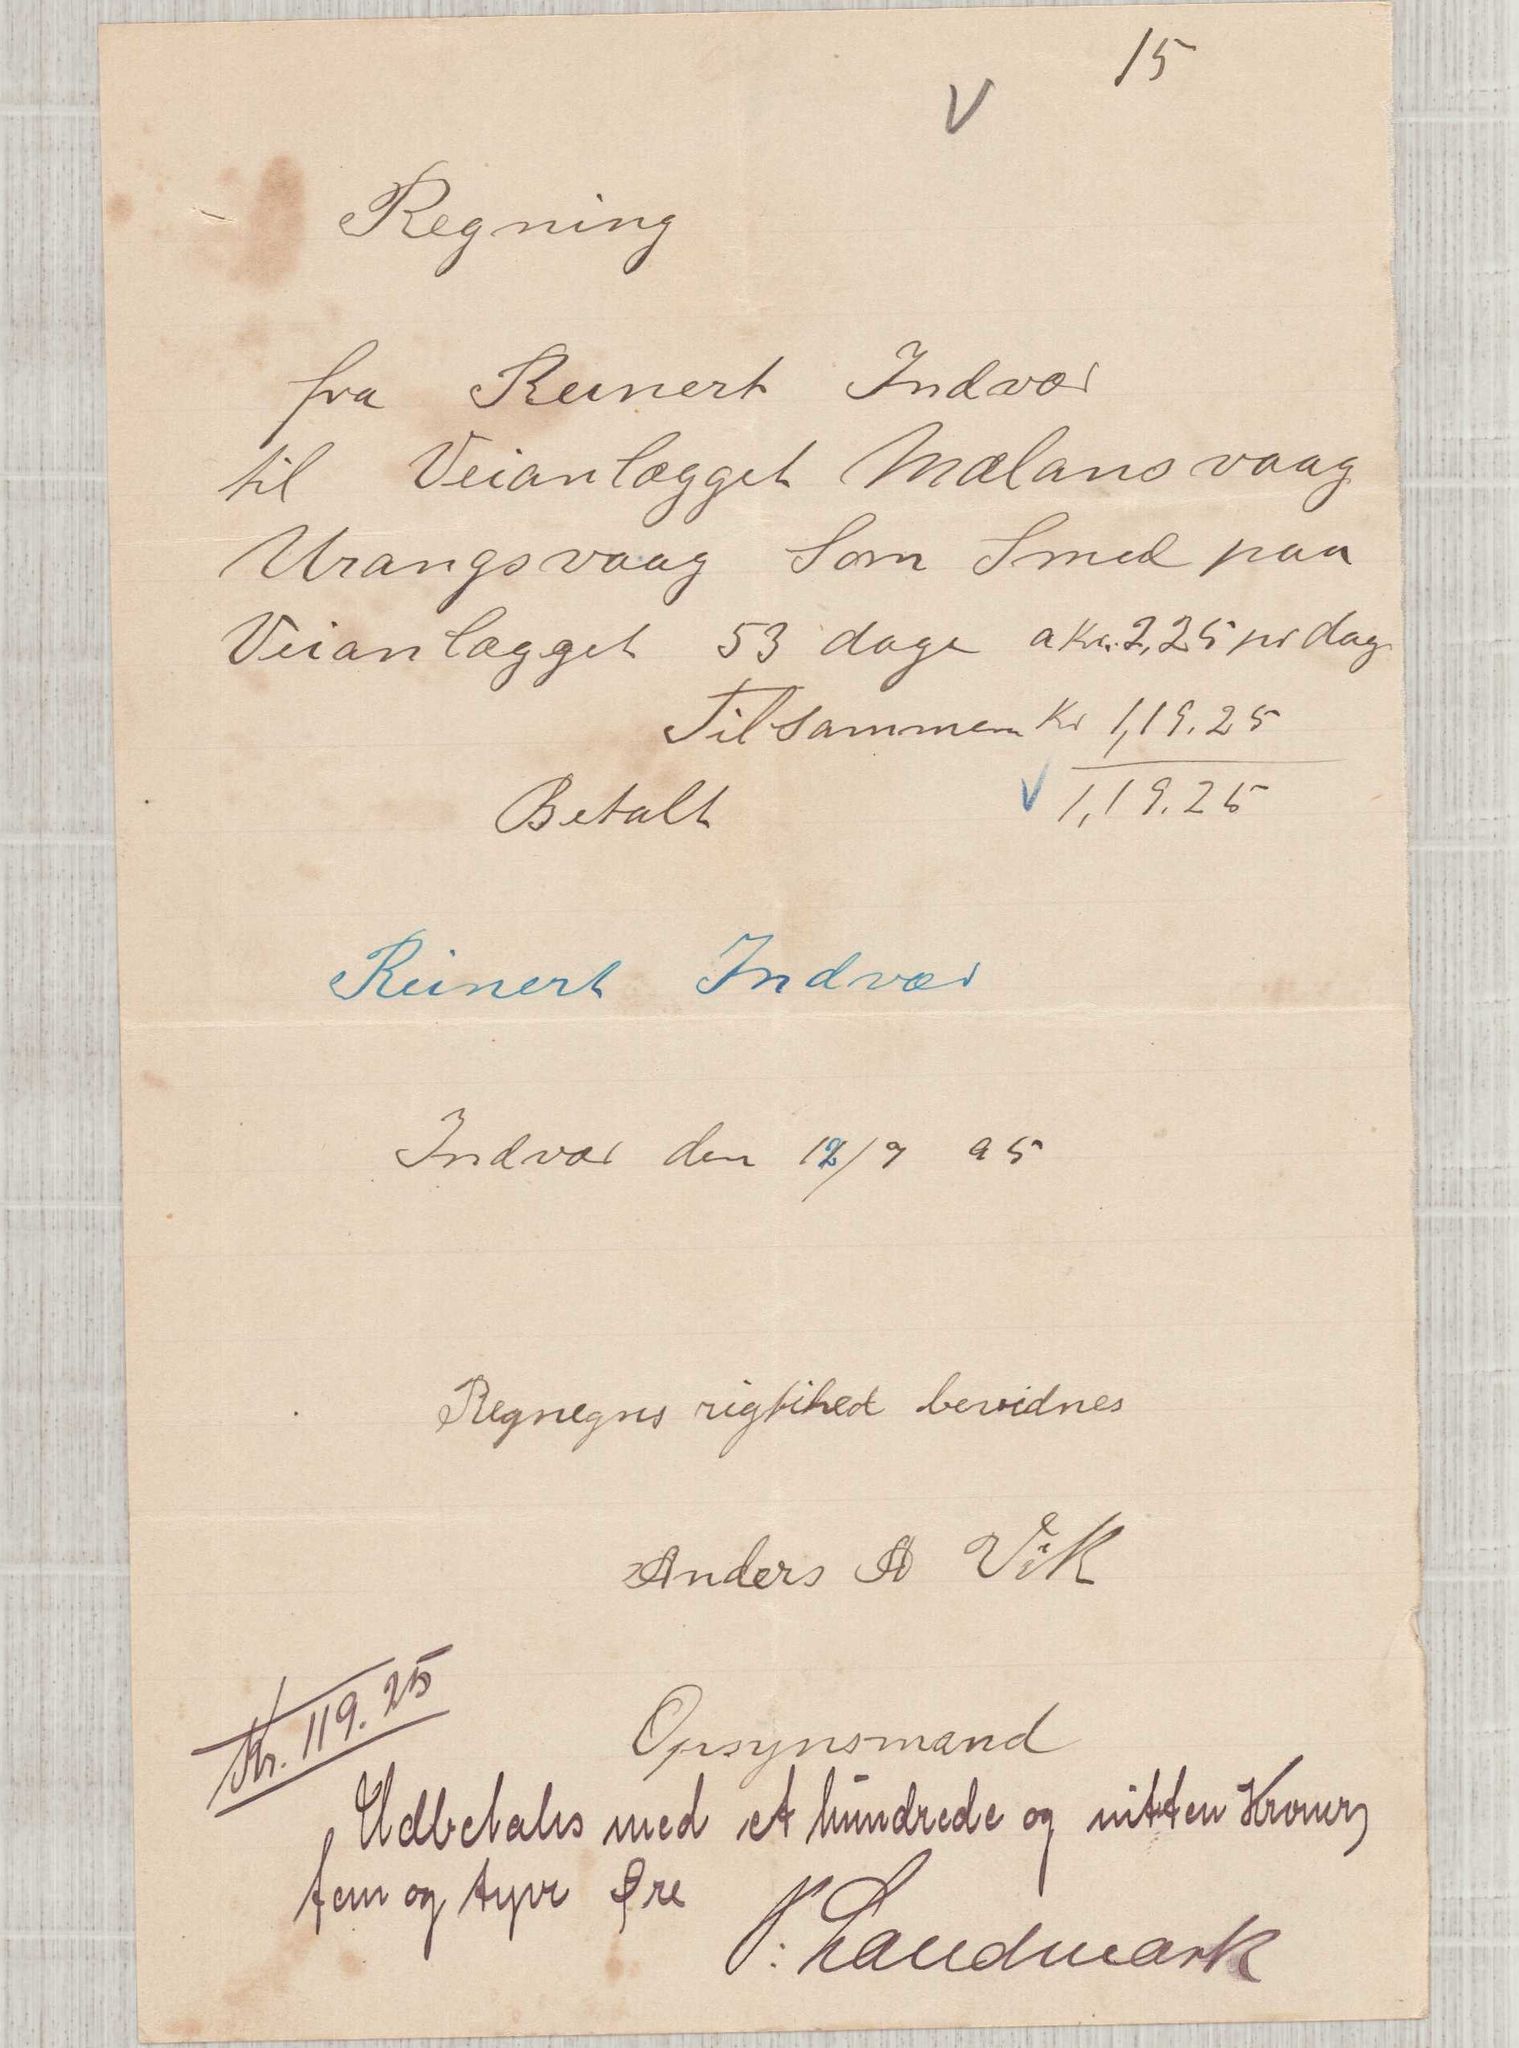 15
V
Regning
fra Reinert Indvær
til Veianlægget Mælansvaag
Urangsvaag Som Smed paa
Veianlægget 53 dage a Kr. 2,25 pr dag
Tilsammen Kr 1,19.25
Betalt V 1,19.25
Reinert Indvær
Indvær den 12/9 95
Regnegns rigtihed bevidnes
Anders A Vik
Opsynsmand
Kr. 119.25
Udbetales med et hundrede og nitten Kroner,
fem og tyve Øre
P. Landmark